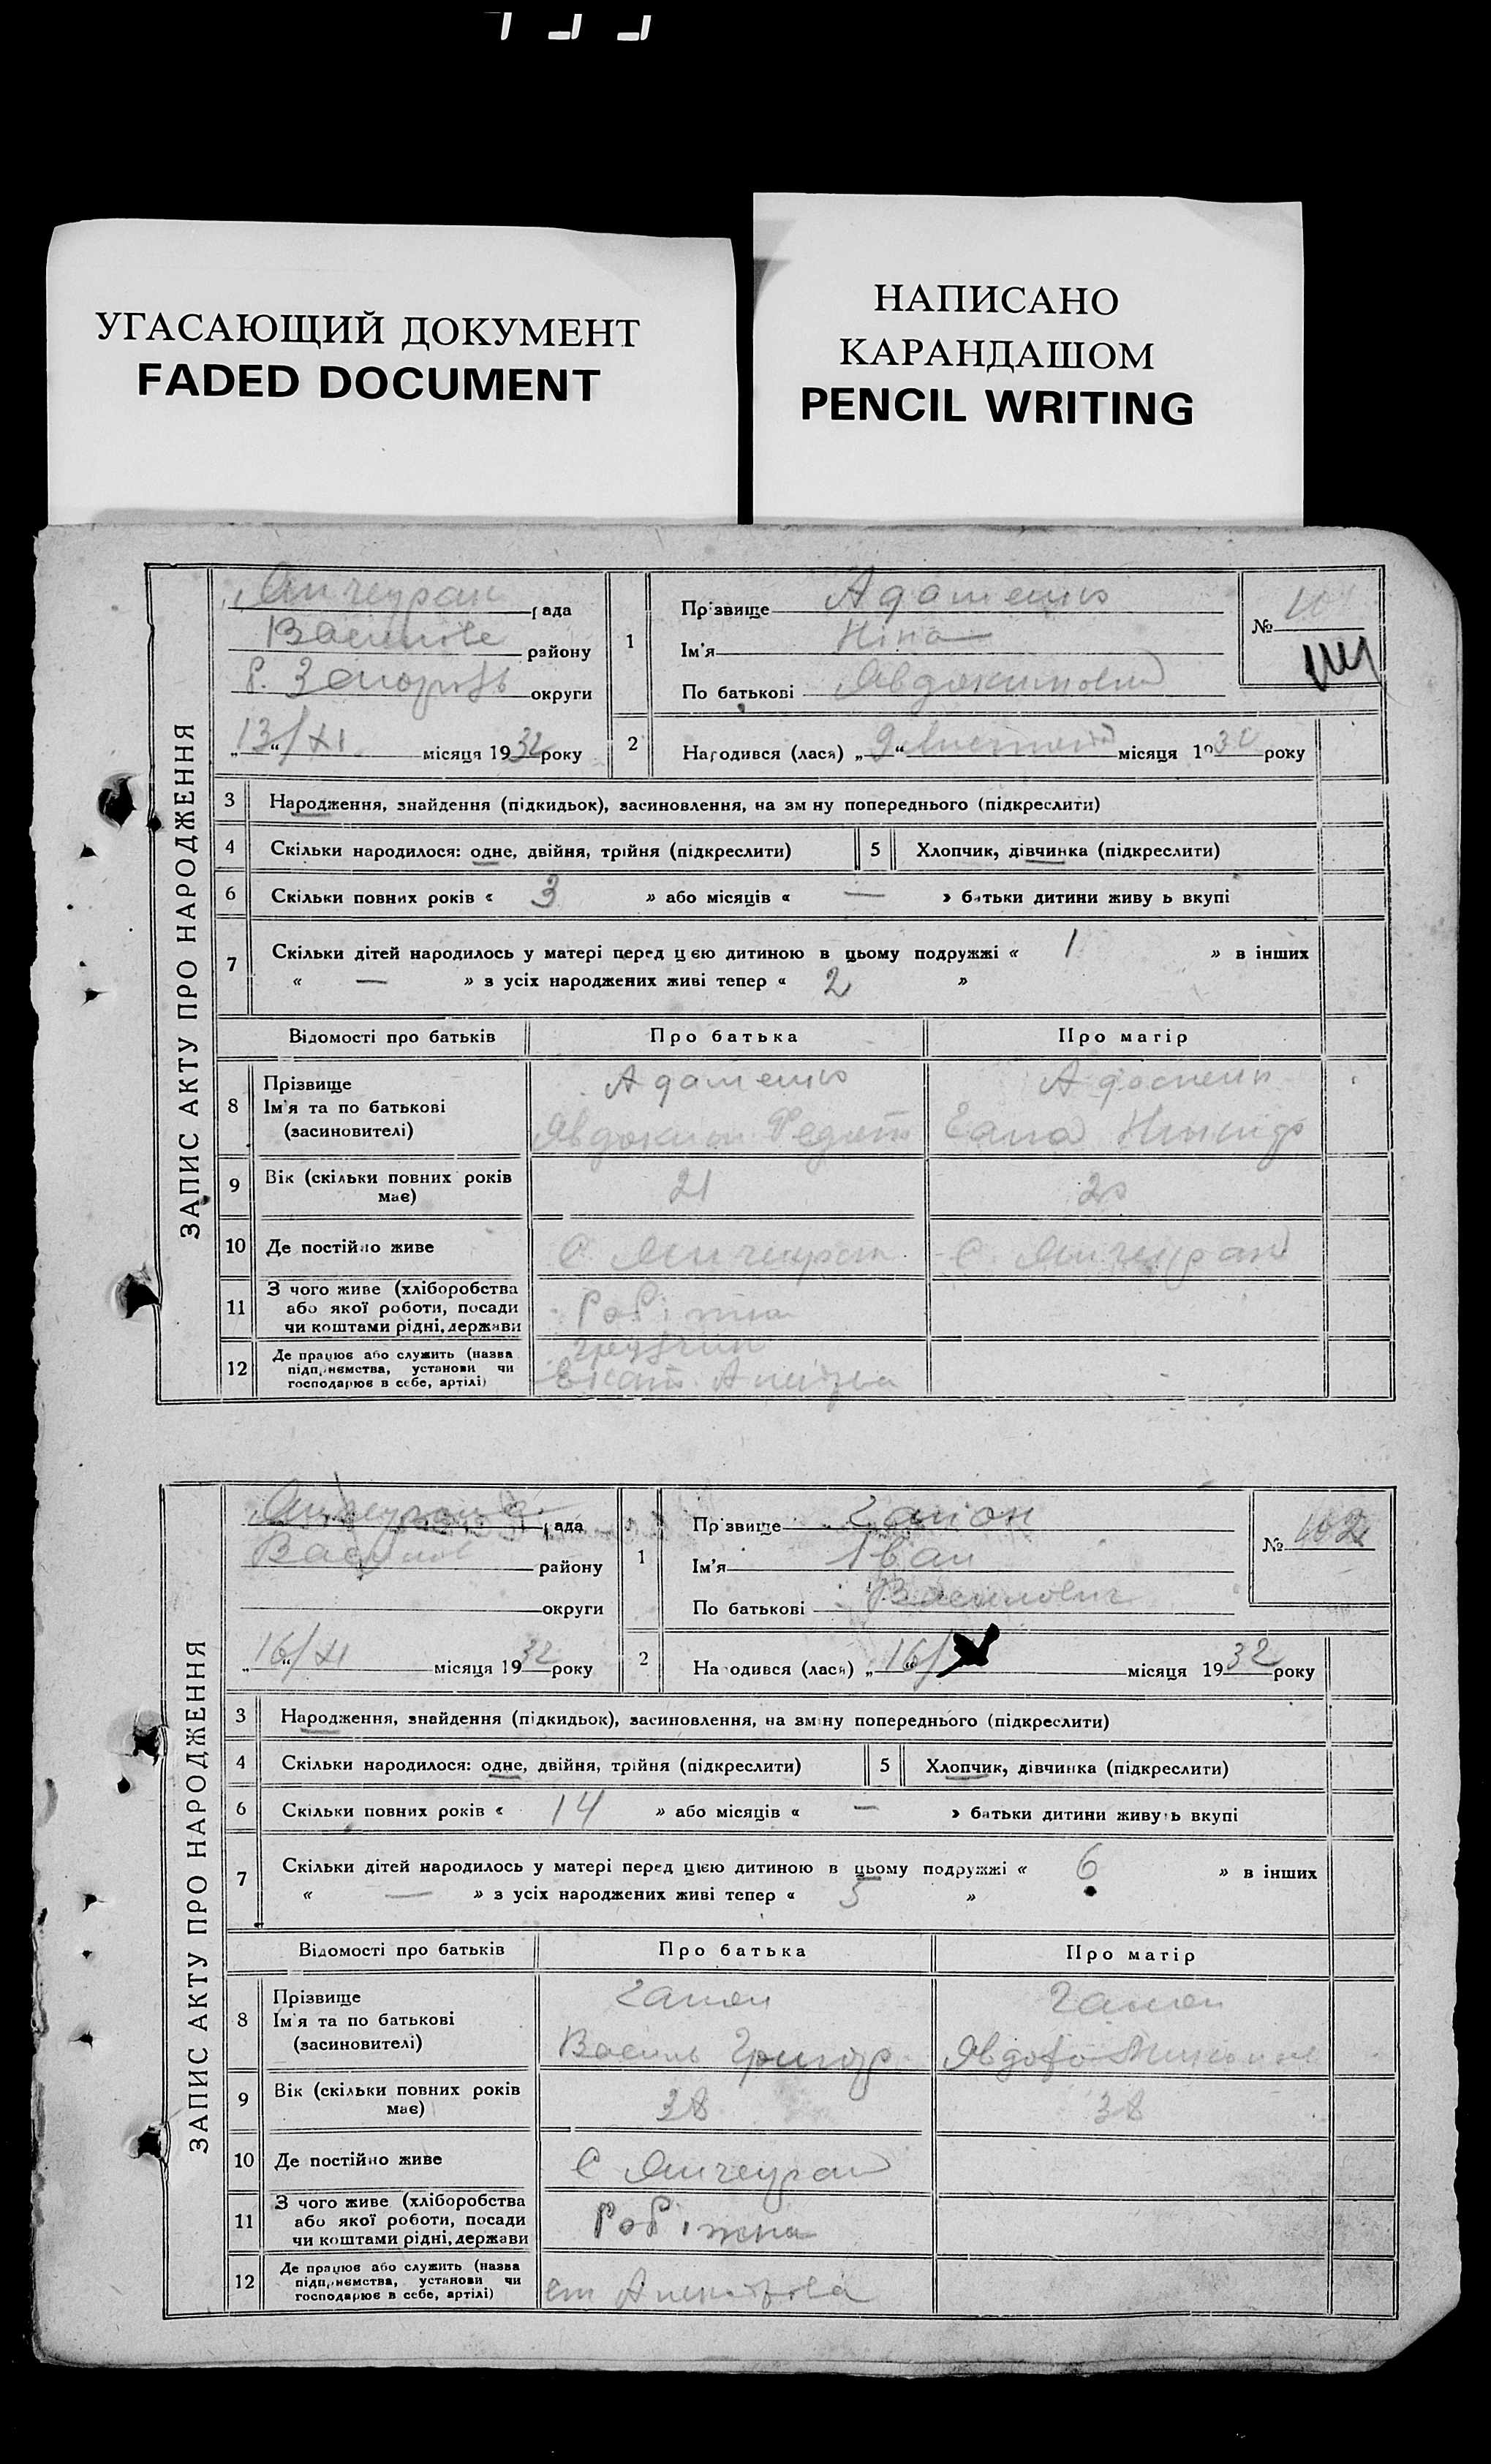 УГАСАЮЩИЙ ДОКУМЕНТ
FADED DOCUMENT
НАПИСАНО
КАРАНДАШОМ
PENCIL WRITING
ЗАПИС АКТУ ПРО НАРОДЖЕННЯ
Янчекрак рада
району
округи
„13“/XI місяця 1932 року
1
Прізвище Адаменко
Ім'я Ніна
По батькові Явдокимовна
№
2 Народився (лася) „9“ місяця 1932 року
3 Народження, знайдення (підкидьок), засиновлення, на зміну попереднього (підкреслити)
4 Скільки народилося: одне, двійня, трійня (підкреслити) 5 Хлопчик, дівчинка (підкреслити)
6 Скільки повних років « 3 » або місяців « — » батьки дитини живуть вкупі
7 Скільки дітей народилось у матері перед цією дитиною в цьому подружжі « 1 » в інших
« — » з усіх народжених живі тепер « 2 »
Відомості про батьків Про батька Про матір
8 Прізвище Адаменко Адаменко
Ім'я та по батькові
(засиновителі) Явдоким Федот
9 Вік (скільки повних років 21 20
має)
10 Де постійно живе С. Янчекрак С. Янчекрак
11 З чого живе (хліборобства
або якої роботи, посади Робітник
чи коштами рідні, держави
12 Де працює або служить (назва грузчик
підприємства, установи чи
господарює в себе, артілі)
ЗАПИС АКТУ ПРО НАРОДЖЕННЯ
рада
району
округи
„16“/XI місяця 1932 року
1
Прізвище Гапон
Ім'я Іван
По батькові Василович
№ 102
2 Народився (лася) „16“/ місяця 1932 року
3 Народження, знайдення (підкидьок), засиновлення, на зміну попереднього (підкреслити)
4 Скільки народилося: одне, двійня, трійня (підкреслити) 5 Хлопчик, дівчинка (підкреслити)
6 Скільки повних років « 14 » або місяців « — » батьки дитини живуть вкупі
7 Скільки дітей народилось у матері перед цією дитиною в цьому подружжі « 6 » в інших
« — » з усіх народжених живі тепер « 5 »
Відомості про батьків Про батька Про матір
8 Прізвище Гапон Гапон
Ім'я та по батькові
(засиновителі) Василь Григор
9 Вік (скільки повних років 38 38
має)
10 Де постійно живе С Янчекрак
11 З чого живе (хліборобства
або якої роботи, посади Робітник
чи коштами рідні, держави
12 Де працює або служить (назва
підприємства, установи чи
господарює в себе, артілі)